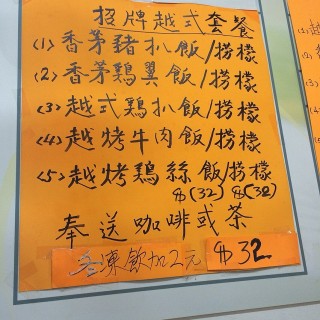 招牌越式套餐
(1) 香茅豬扒飯/撈檬
(2) 香茅鷄翼飯/撈檬
(3) 越式鷄扒飯/撈檬
(4) 越烤牛肉飯/撈檬
(5) 越烤鷄絲飯/撈檬
$(32) $(32)
奉送咖啡或茶
凍飲加2元 $32